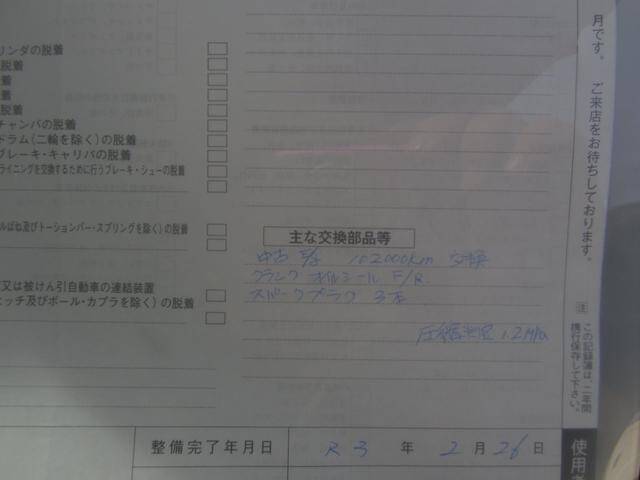 リンダの脱着
脱着
着
着
脱着
チャンバの脱着
ドラム(二輪を除く)の脱着
ブレーキ・キャリパの脱着
ライニングを交換するために行うブレーキ・シューの脱着
ばね及びトーションバー・スプリングを除く)の脱着
又は被けん引自動車の連結装置
ヒッチ及びボール・カプラを除く)の脱着
主な交換部品等
中古 E/g 102000km 交換
クランクオイルシール F/R
スパークプラグ 3本
圧縮 1.2MPa
整備完了年月日 R3 年 2 月 26 日
月です。 ご来店をお待ちしております。
注 この記録簿は、二年間
携行保存して下さい。
使用者